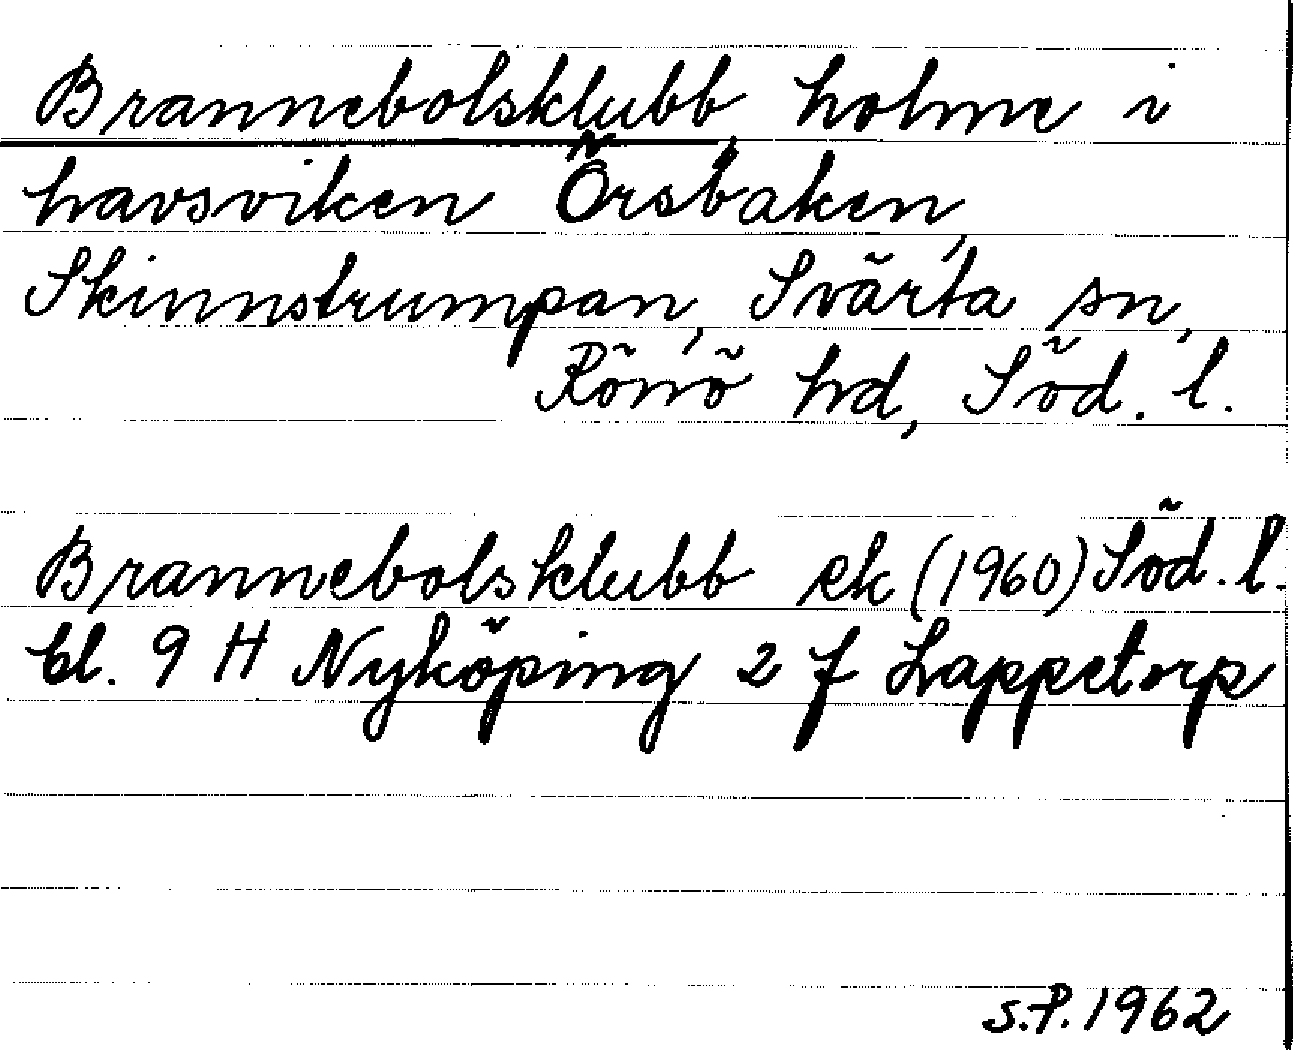 Brannebolsklubb, holme i
havsviken Örsbaken,
Skinnstrumpan, Svärta sn,
Rönö hd, Söd. l.
Brannebolsklubb ek (1960) Söd. l.
bl. 9 H Nyköping 2 f Lappetorp
S.P. 1962